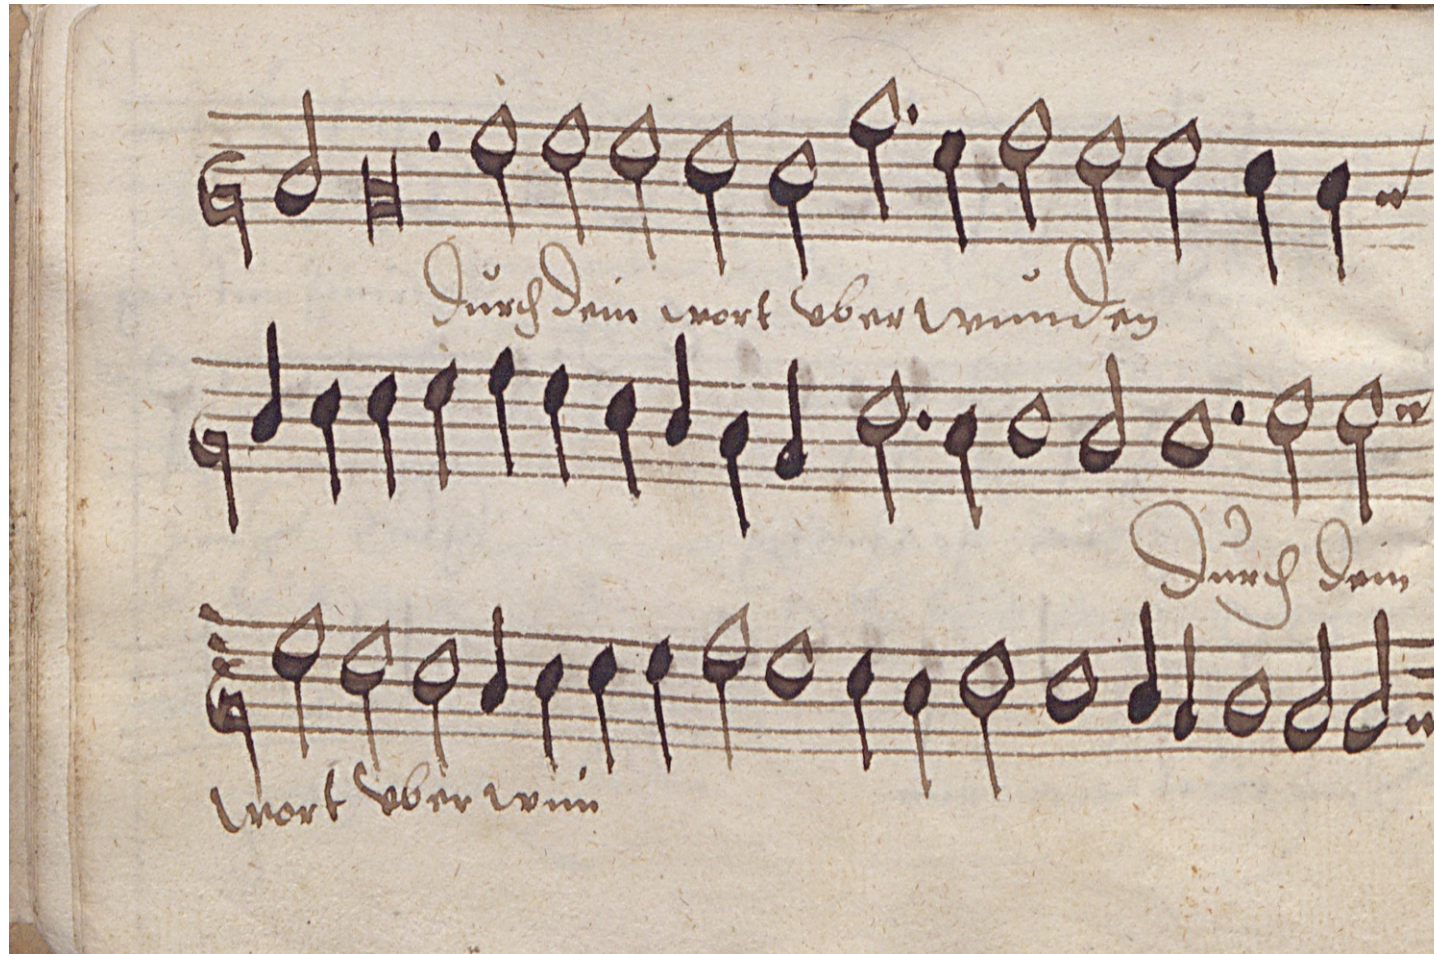 Durch dein wort vberwunden
Durch dein
wort vberwun